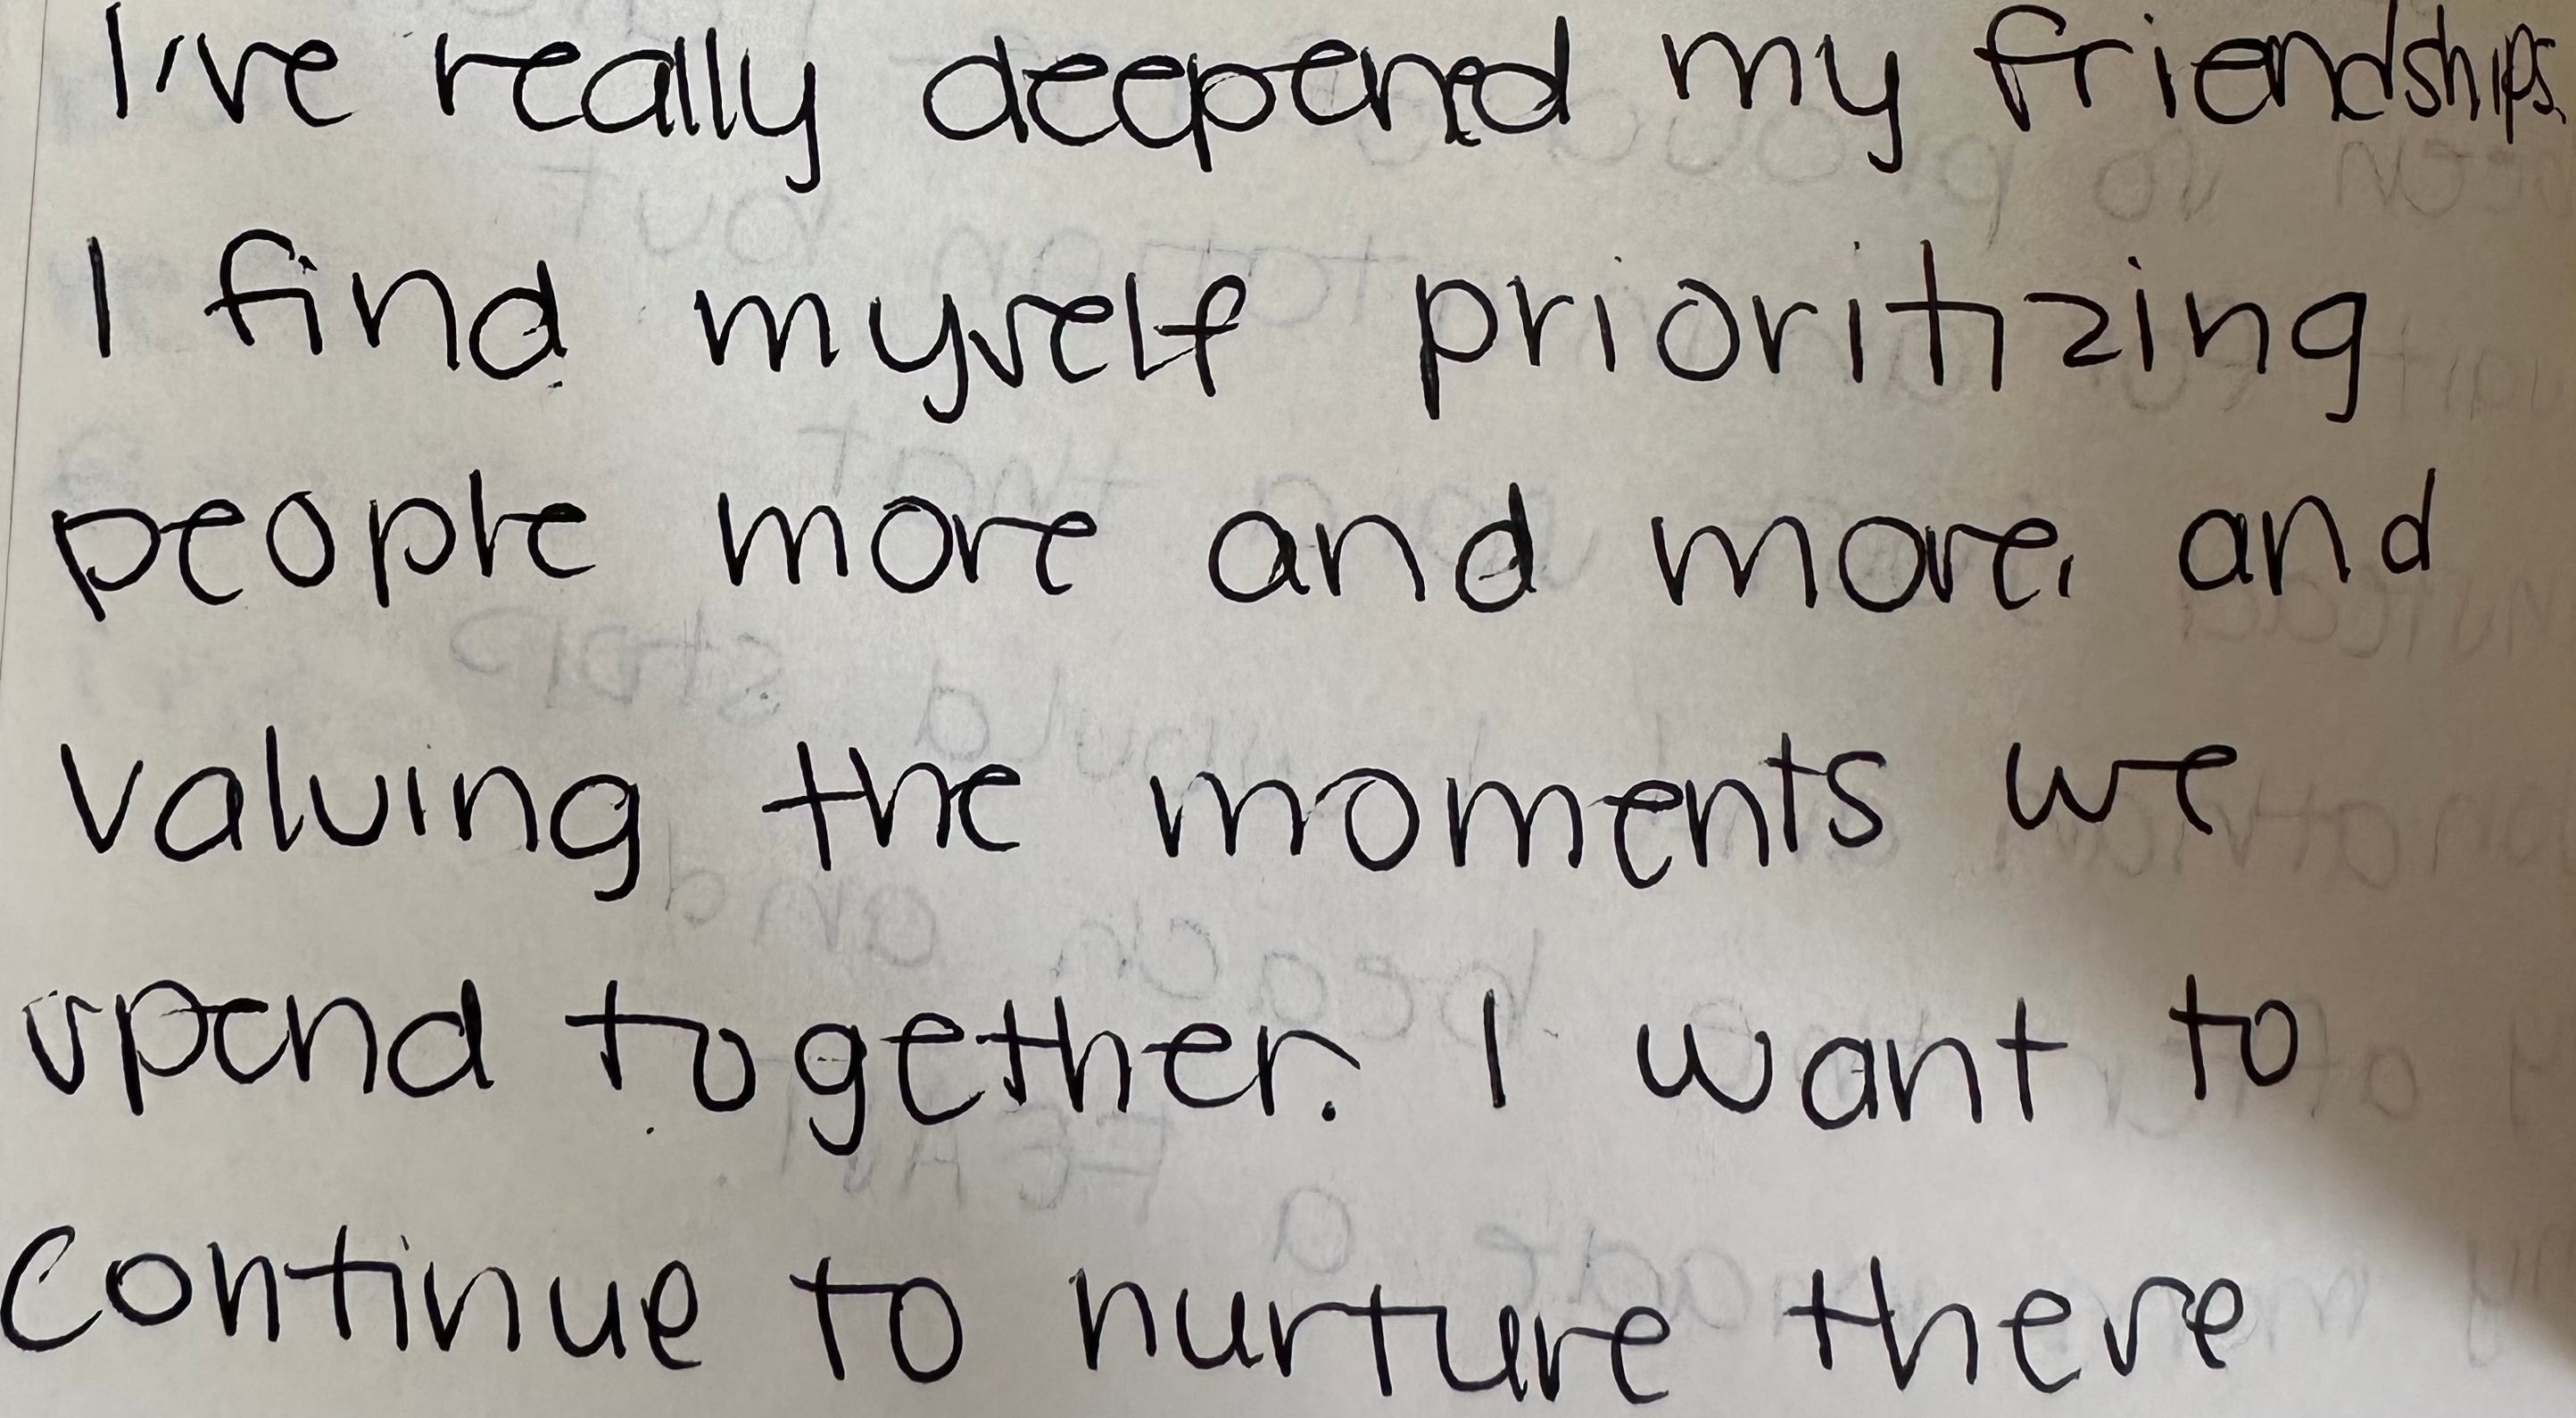 I've really deepened my friendships.
I find myself prioritizing
people more and more, and
valuing the moments we
spend together. I want to
continue to nurture these